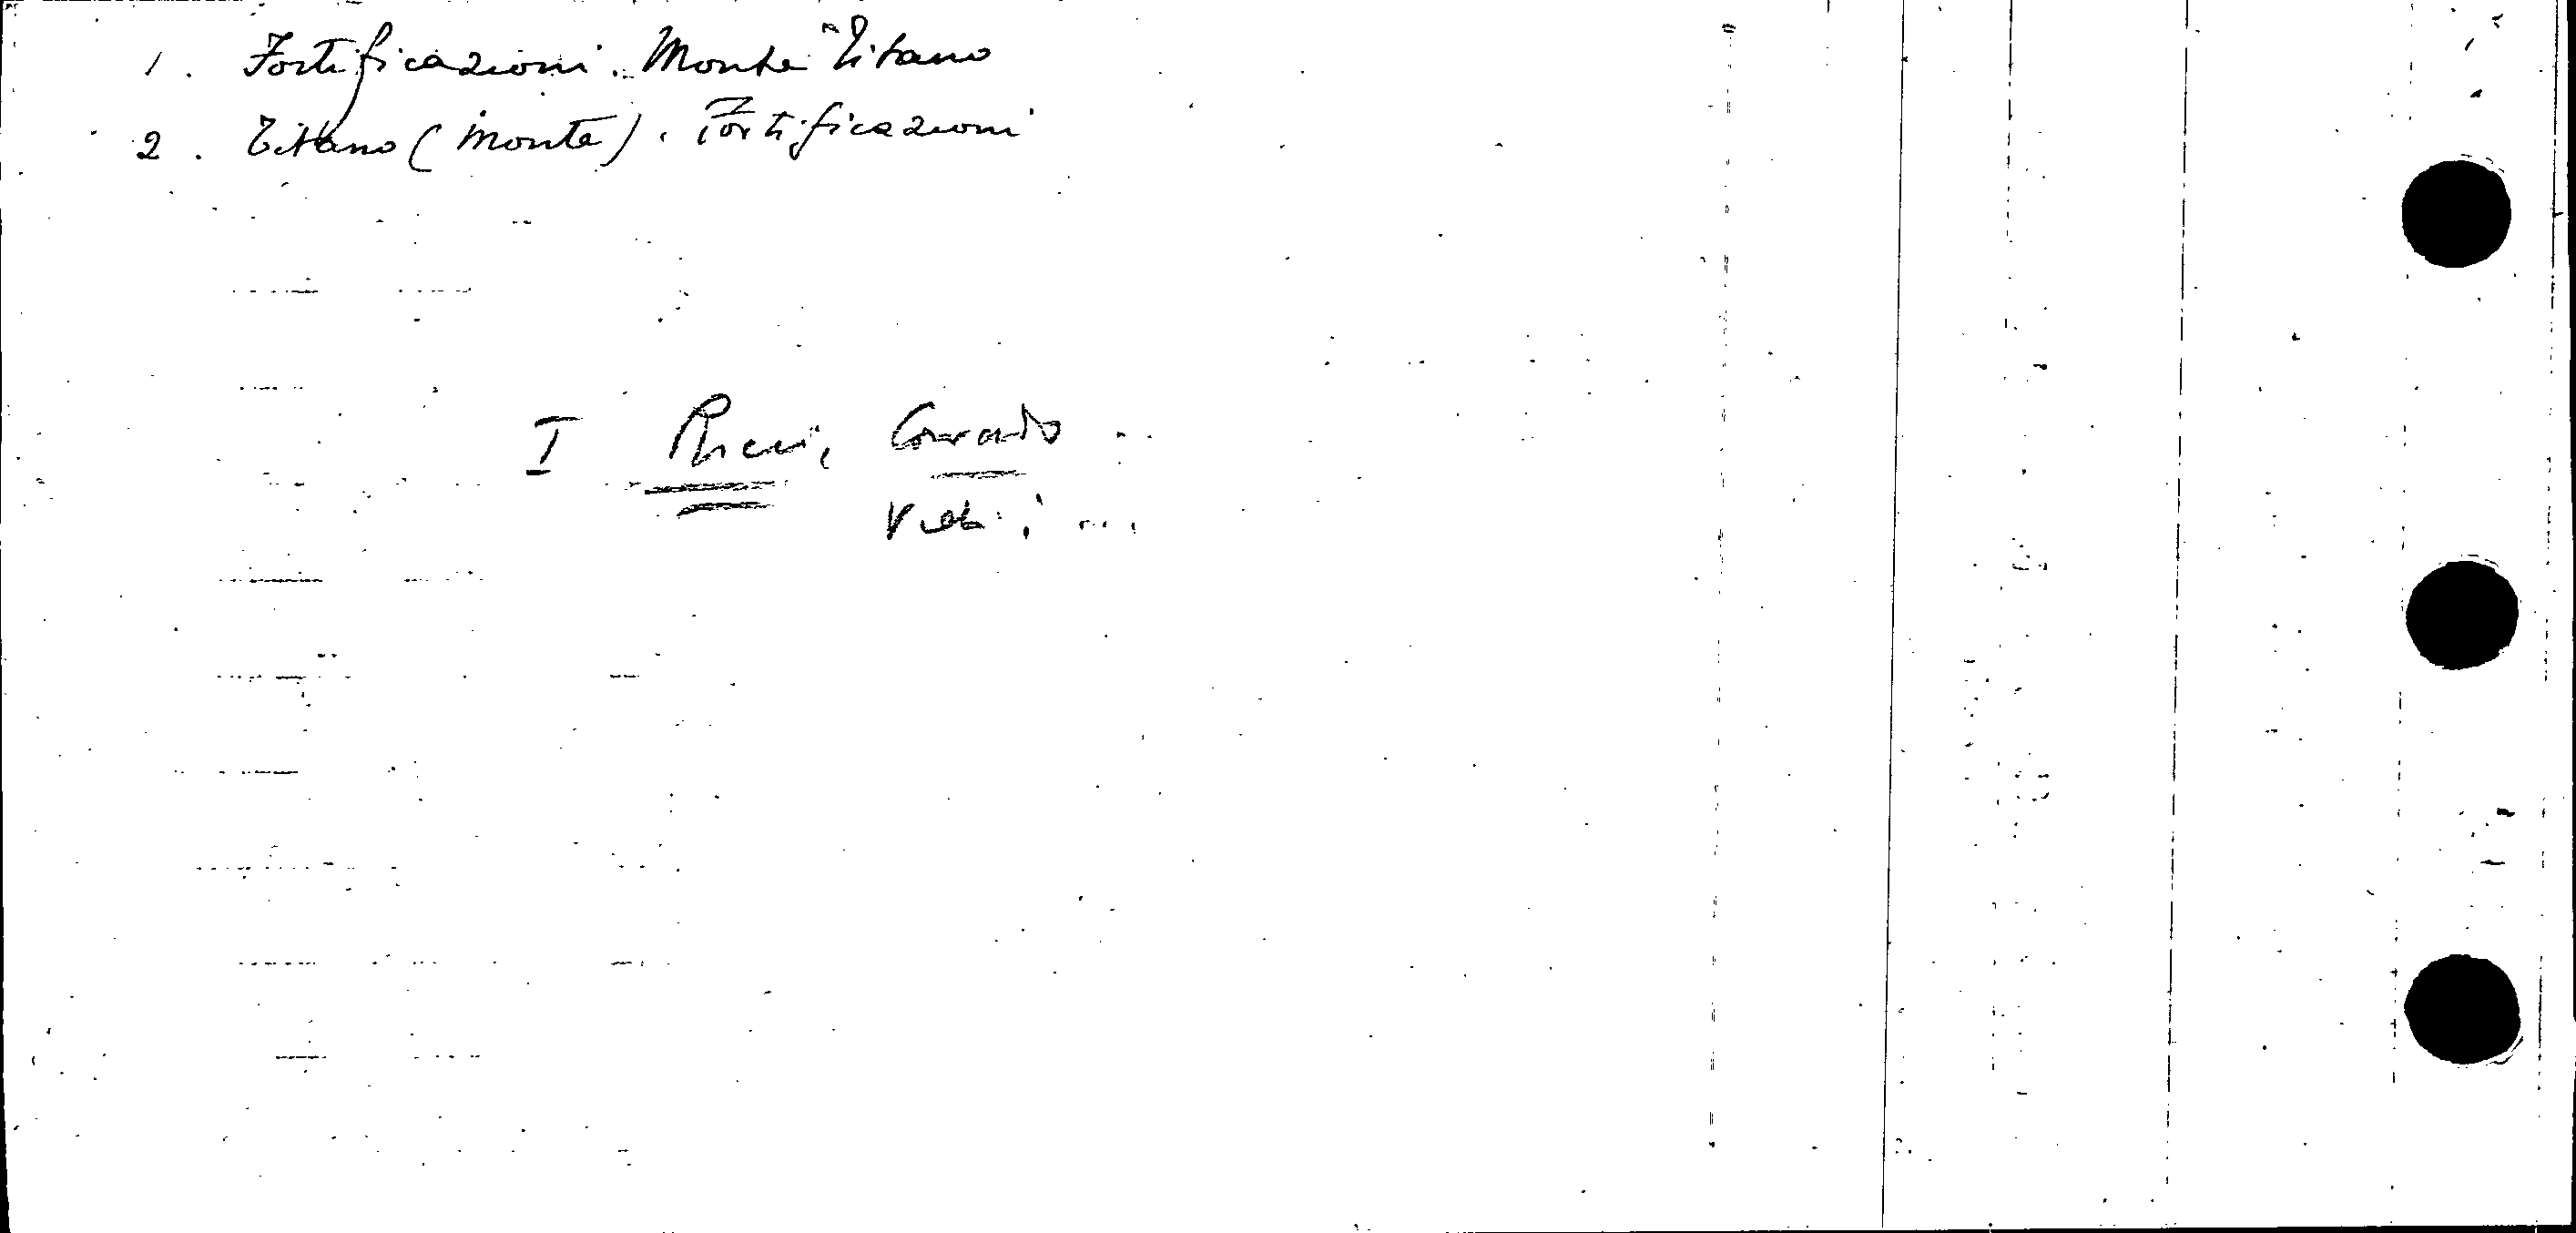 1. Fortificazioni. Monte Titano
2. Titano (Monte). Fortificazioni
I Ricci, Corrado ..
Vedi: ...